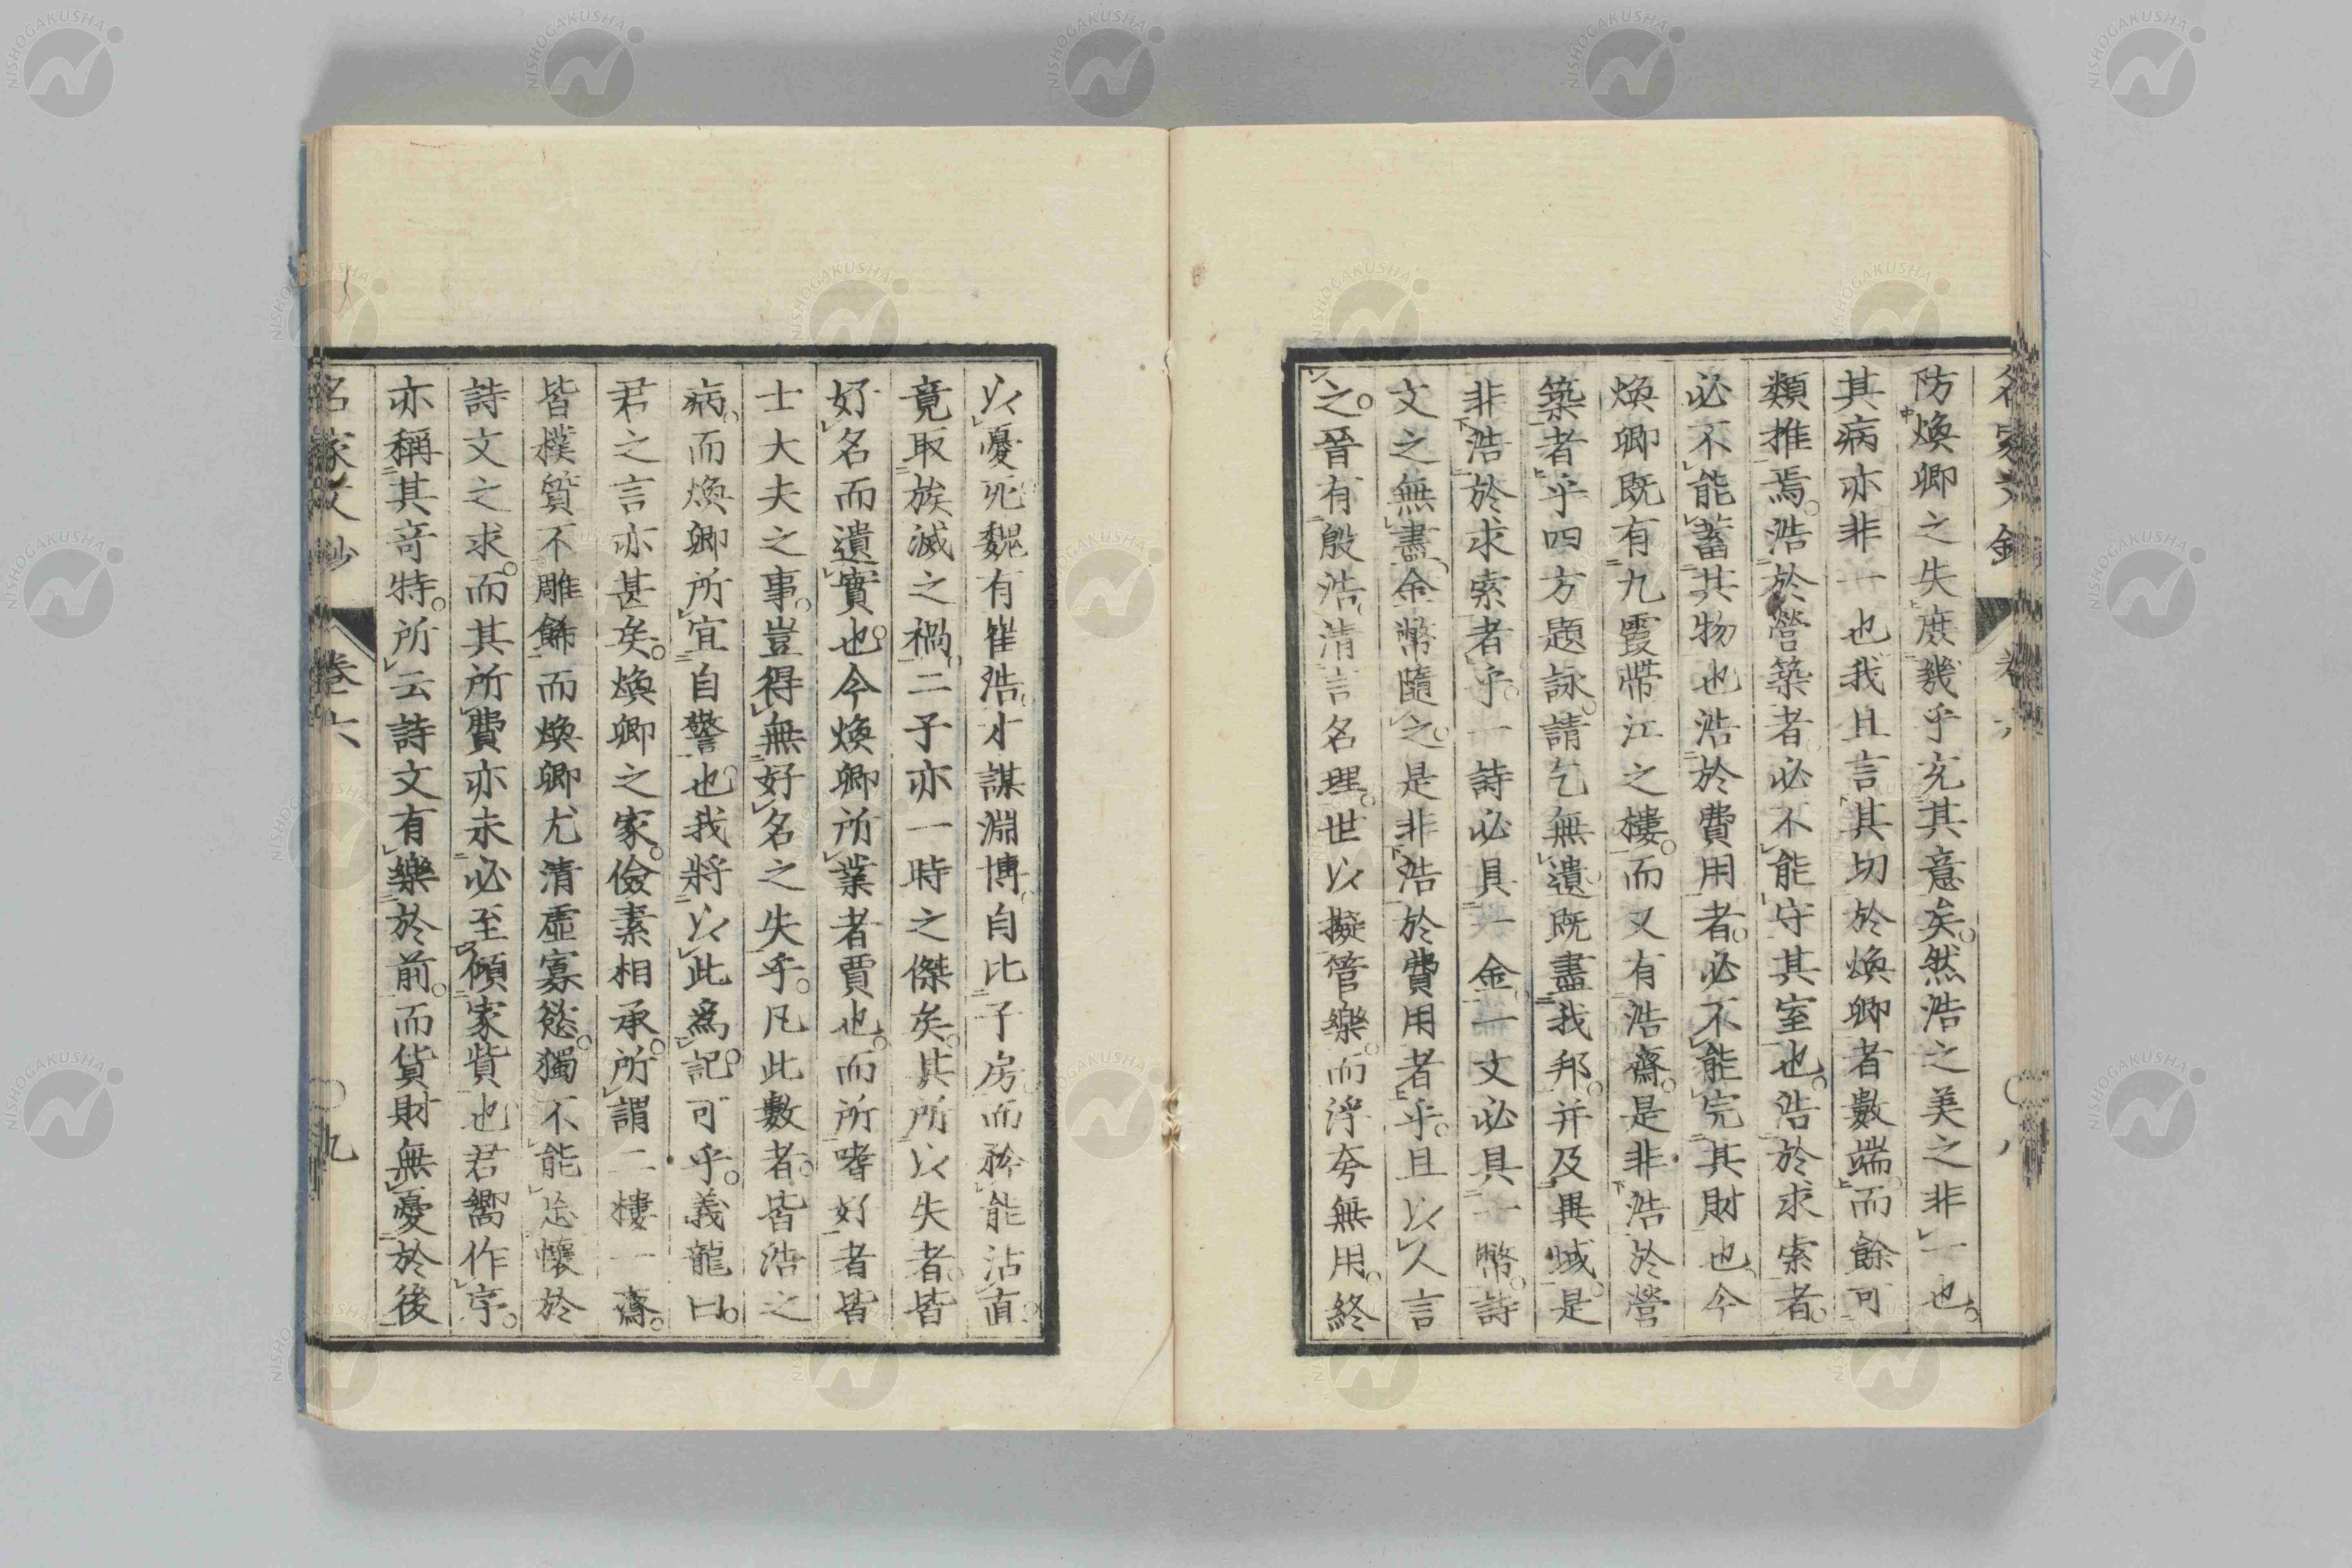 防煥卿之失庶幾乎充其意矣。然浩之美之非一也。
其病亦非一也我且言其切於煥卿者數端而餘可
類推焉。浩於營築者必不能守其室也。浩於求索者。
必不能蓄其物也浩於費用者。必不能完其財也今
煥卿既有九霞帶江之樓。而又有浩齋。是非浩於營
築者乎四方題詠。請乞無遺既盡我邦。并及異域。是
非浩於求索者乎。一詩必具一金一文必具一幣。詩
文之無盡金幣隨之。是非浩於費用者乎。且以人言
之。晉有殷浩清言名理。世以擬管樂。而浮夸無用。終
以憂死魏有崔浩才謀淵博自比子房而矜能沽直
竟取族滅之禍二子亦一時之傑矣。其所以失者。皆
好名而遺實也。今煥卿所業者賈也。而所嗜好者皆
士大夫之事。豈得無好名之失乎。凡此數者。皆浩之
病。而煥卿所宜自警也。我將以此爲記可乎。義龍曰。
君之言亦甚矣。煥卿之家。儉素相承。所謂二樓一齋。
皆樸質不雕餙而煥卿尤清虛寡慾。獨不能忘懷於
詩文之求。而其所費亦未必至傾家貲也君嚮作序。
亦稱其竒特。所云詩文有樂於前。而貨財無憂於後
名家文鈔
卷六
〇九
NISHOGAKUSHA